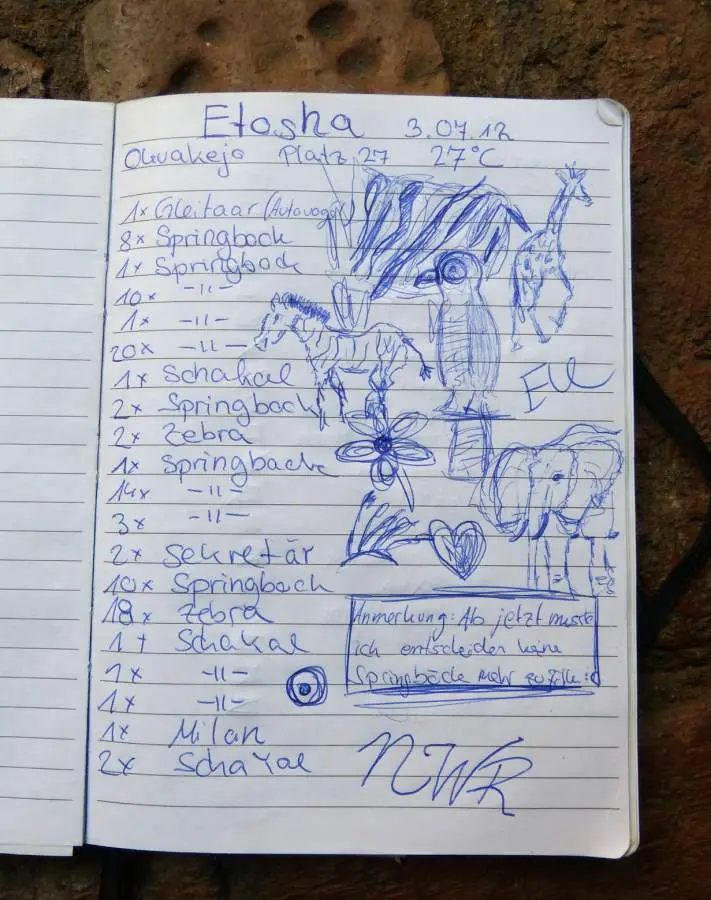 Etosha 3.07.12
Okuakejo Platz 27 27°C
1x Gleitaar (Autovogel)
8x Springbock
1x Springbock
10x -11-
1x -11-
20x -11-
1x Schakal
2x Springbock
2x Zebra
1x Springbock
14x -11-
3x -11-
2x Sekretär
10x Springbock
18x Zebra
1+ Schakal
1x -11-
1x -11-
1x Milan
2x Schakal
Anmerkung: Ab jetzt musste
ich entscheiden keine
Springböcke mehr zu
NWR